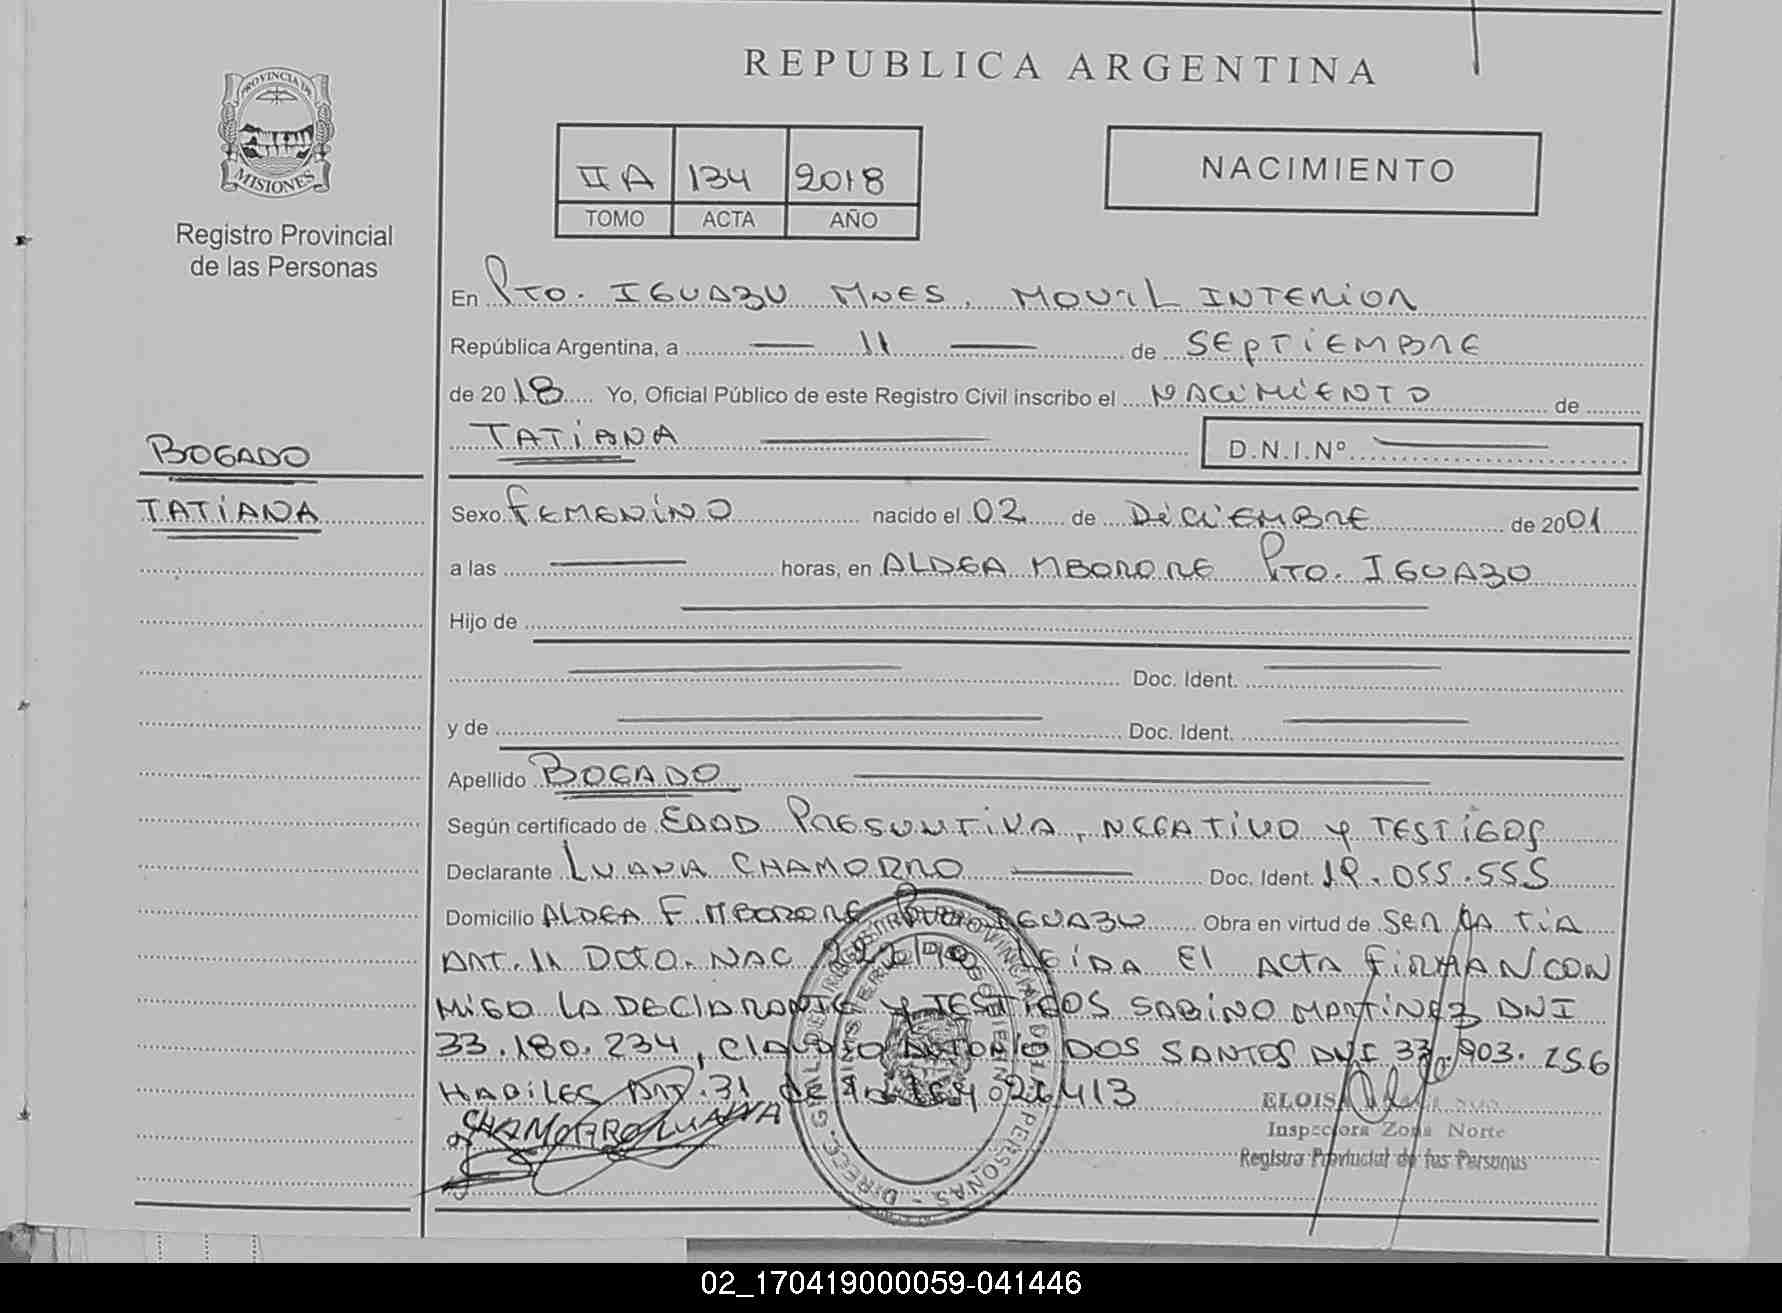 REPUBLICA ARGENTINA
PROVINCIA DE
MISIONES
Registro Provincial
de las Personas
II A 134 2018
TOMO ACTA AÑO
NACIMIENTO
En Pto. IGUAZU MNES, MOVIL INTERIOR
República Argentina, a 11 de SEPTIEMBRE
de 2018 Yo, Oficial Público de este Registro Civil inscribo el NACIMIENTO de
TATIANA D.N.I.Nº
BOGADO
TATIANA
Sexo FEMENINO nacido el 02 de DICIEMBRE de 2001
a las horas, en ALDEA MBORORE Pto. IGUAZU
Hijo de
Doc. Ident.
y de Doc. Ident.
Apellido BOGADO
Según certificado de EDAD PRESUNTIVA, NEGATIVO y TESTIGOS
Declarante LUANA CHAMORRO Doc. Ident. 19.055.555
Domicilio ALDEA F. MBORORE IGUAZU Obra en virtud de SER LA TIA
ART. 11 DCTO. NAC LEIDA El ACTA FIRMAN CON
MIGO LA DECLARANTE y TESTIGOS SABINO MARTINEZ DNI
33.180.234, CLAUDIO ANTONIO DOS SANTOS DNI 903.256
HABILES ART. 31 de la ley 26413
CHAMORRO LUANA
ELOISA
Inspectora Zona Norte
Registro Provincial de las Personas
02_170419000059-041446